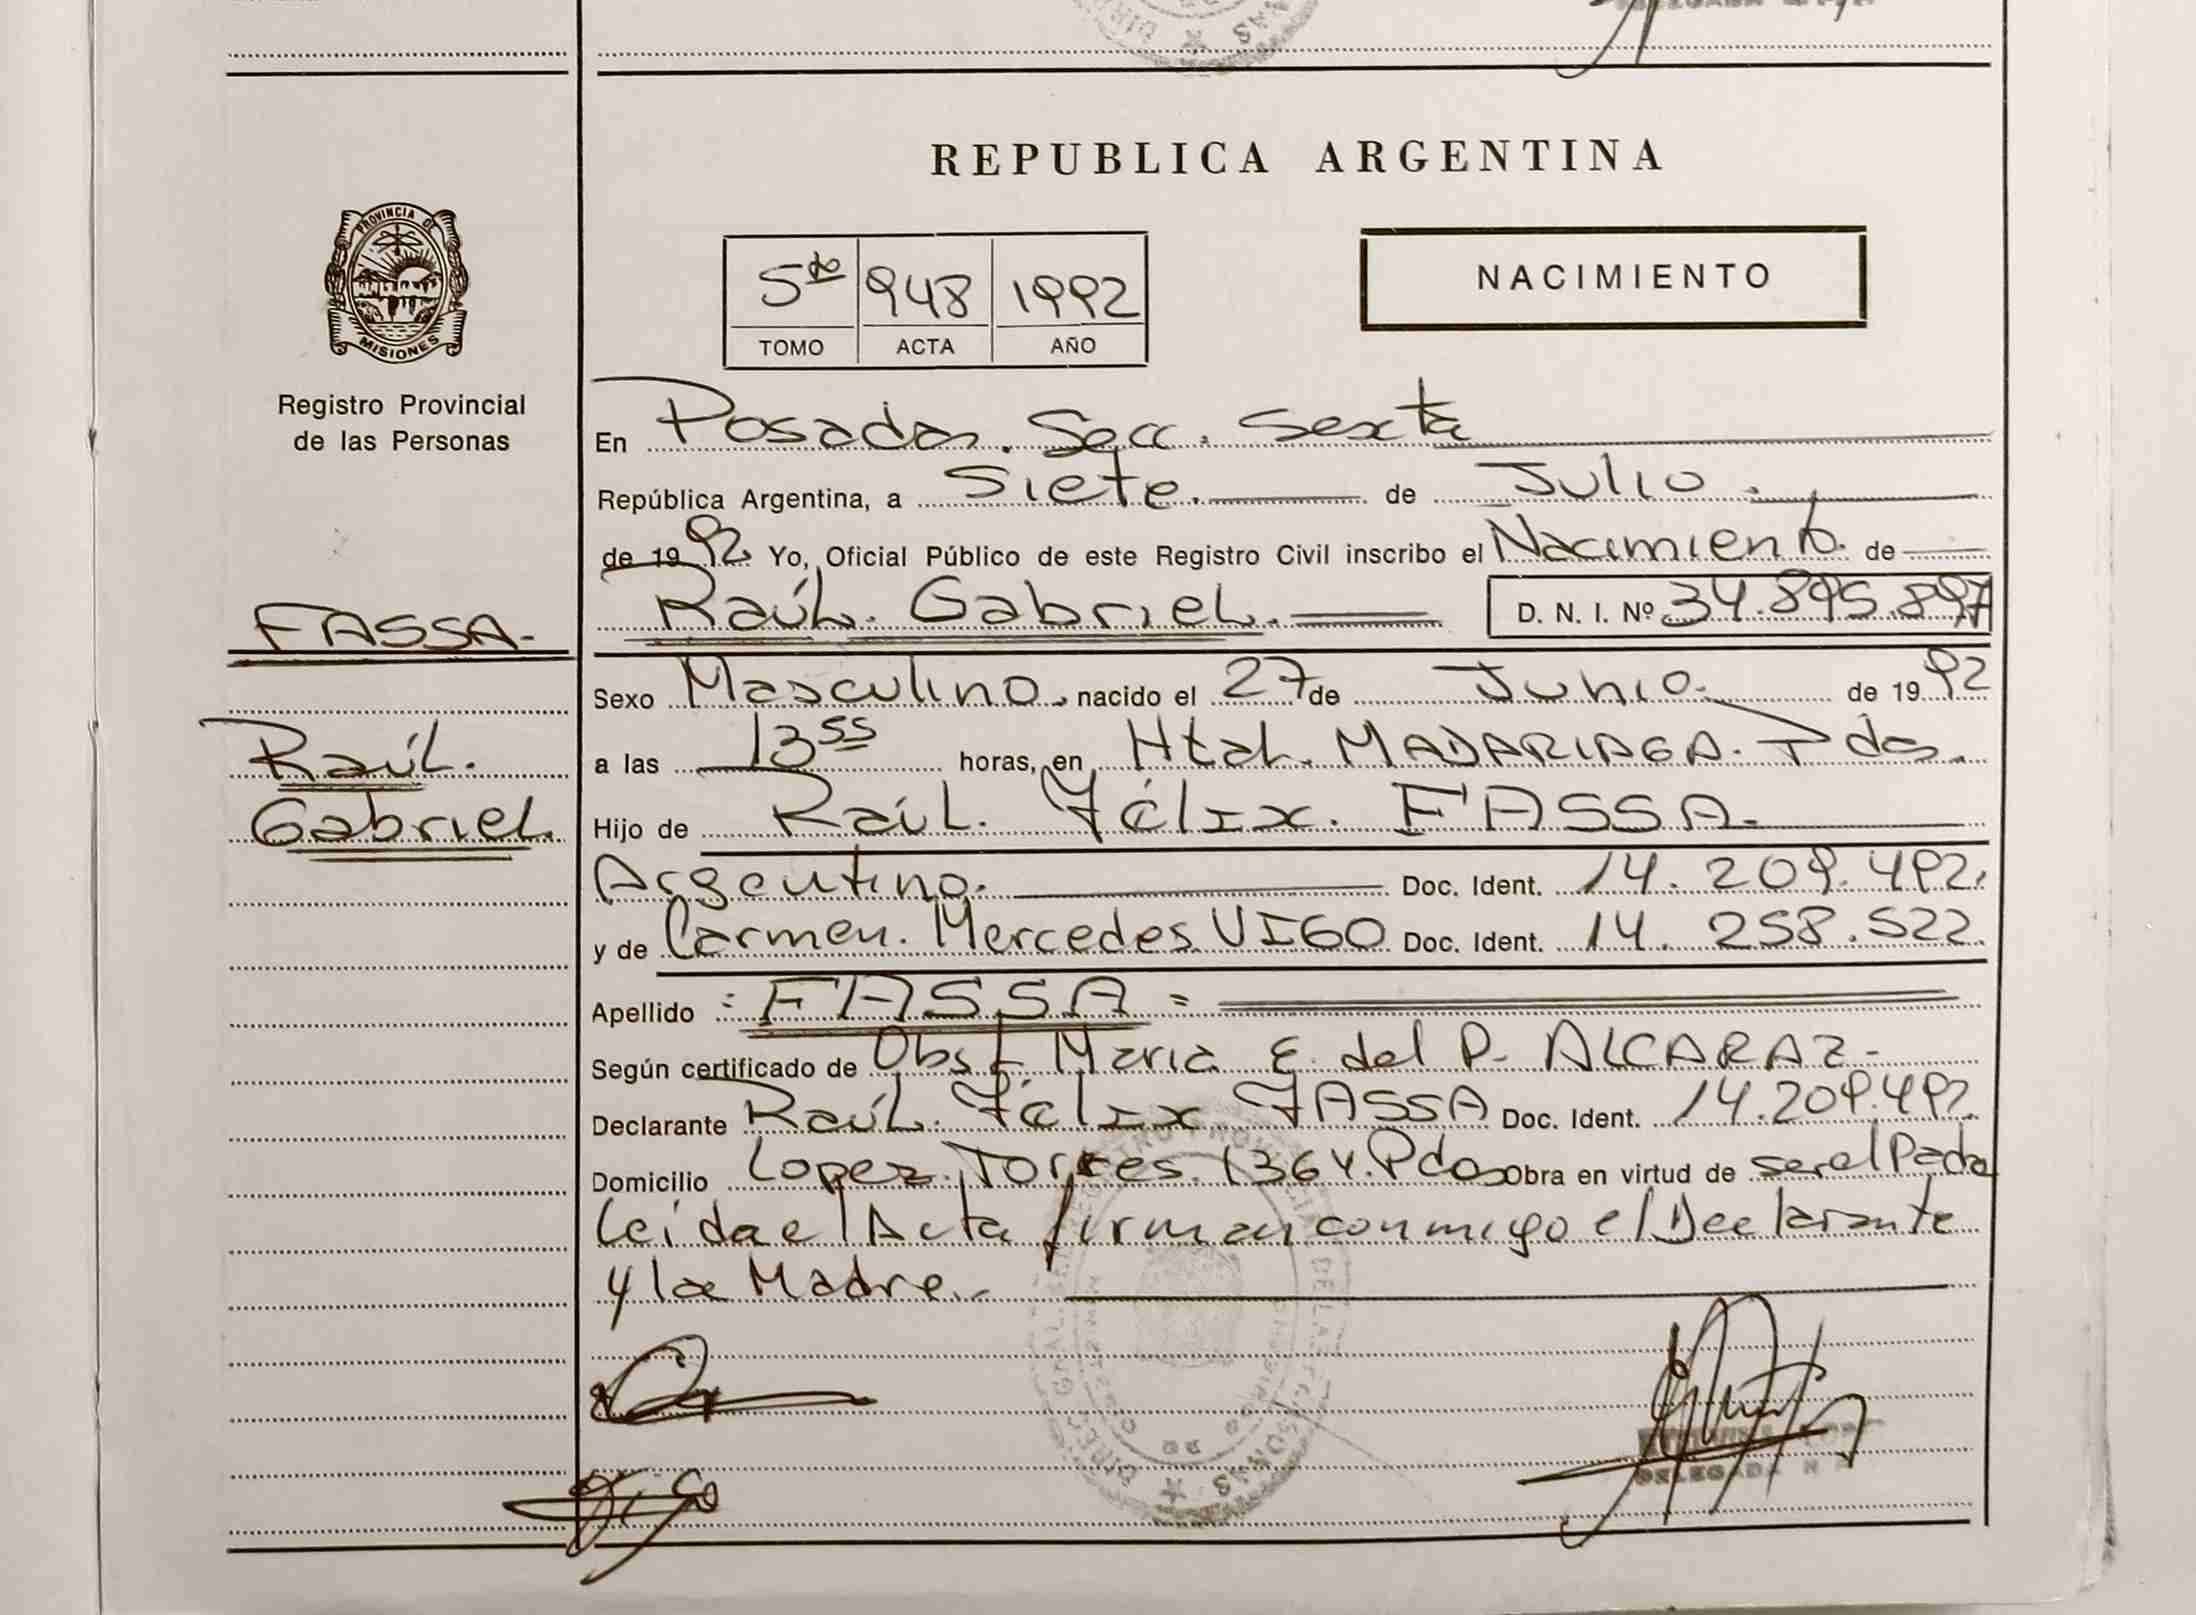 REPUBLICA ARGENTINA
NACIMIENTO
5to 948 1992
TOMO ACTA AÑO
PROVINCIA DE
MISIONES
Registro Provincial
de las Personas
FASSA.
Raúl.
Gabriel.
En Posadas. Secc. Sexta
República Argentina, a Siete. de Julio.
de 1992 Yo, Oficial Público de este Registro Civil inscribo el Nacimiento. de
Raúl. Gabriel. D. N. I. Nº 34.895.897
Sexo Masculino, nacido el 27 de Junio. de 1992
a las 13 55 horas, en Htal. MADARIAGA. Pdas.
Hijo de Raúl. Félix. FASSA.
Argentino. Doc. Ident. 14.209.492.
y de Carmen. Mercedes VIGO Doc. Ident. 14.258.522.
Apellido : FASSA =
Según certificado de Obst. Maria E. del P. ALCARAZ-
Declarante Raúl. Félix FASSA Doc. Ident. 14.209.492
Domicilio Lopez. Torres. 1364. Pdas Obra en virtud de ser el Padre
Leida el Acta firman conmigo el Declarante
y la Madre.
DELEGADA